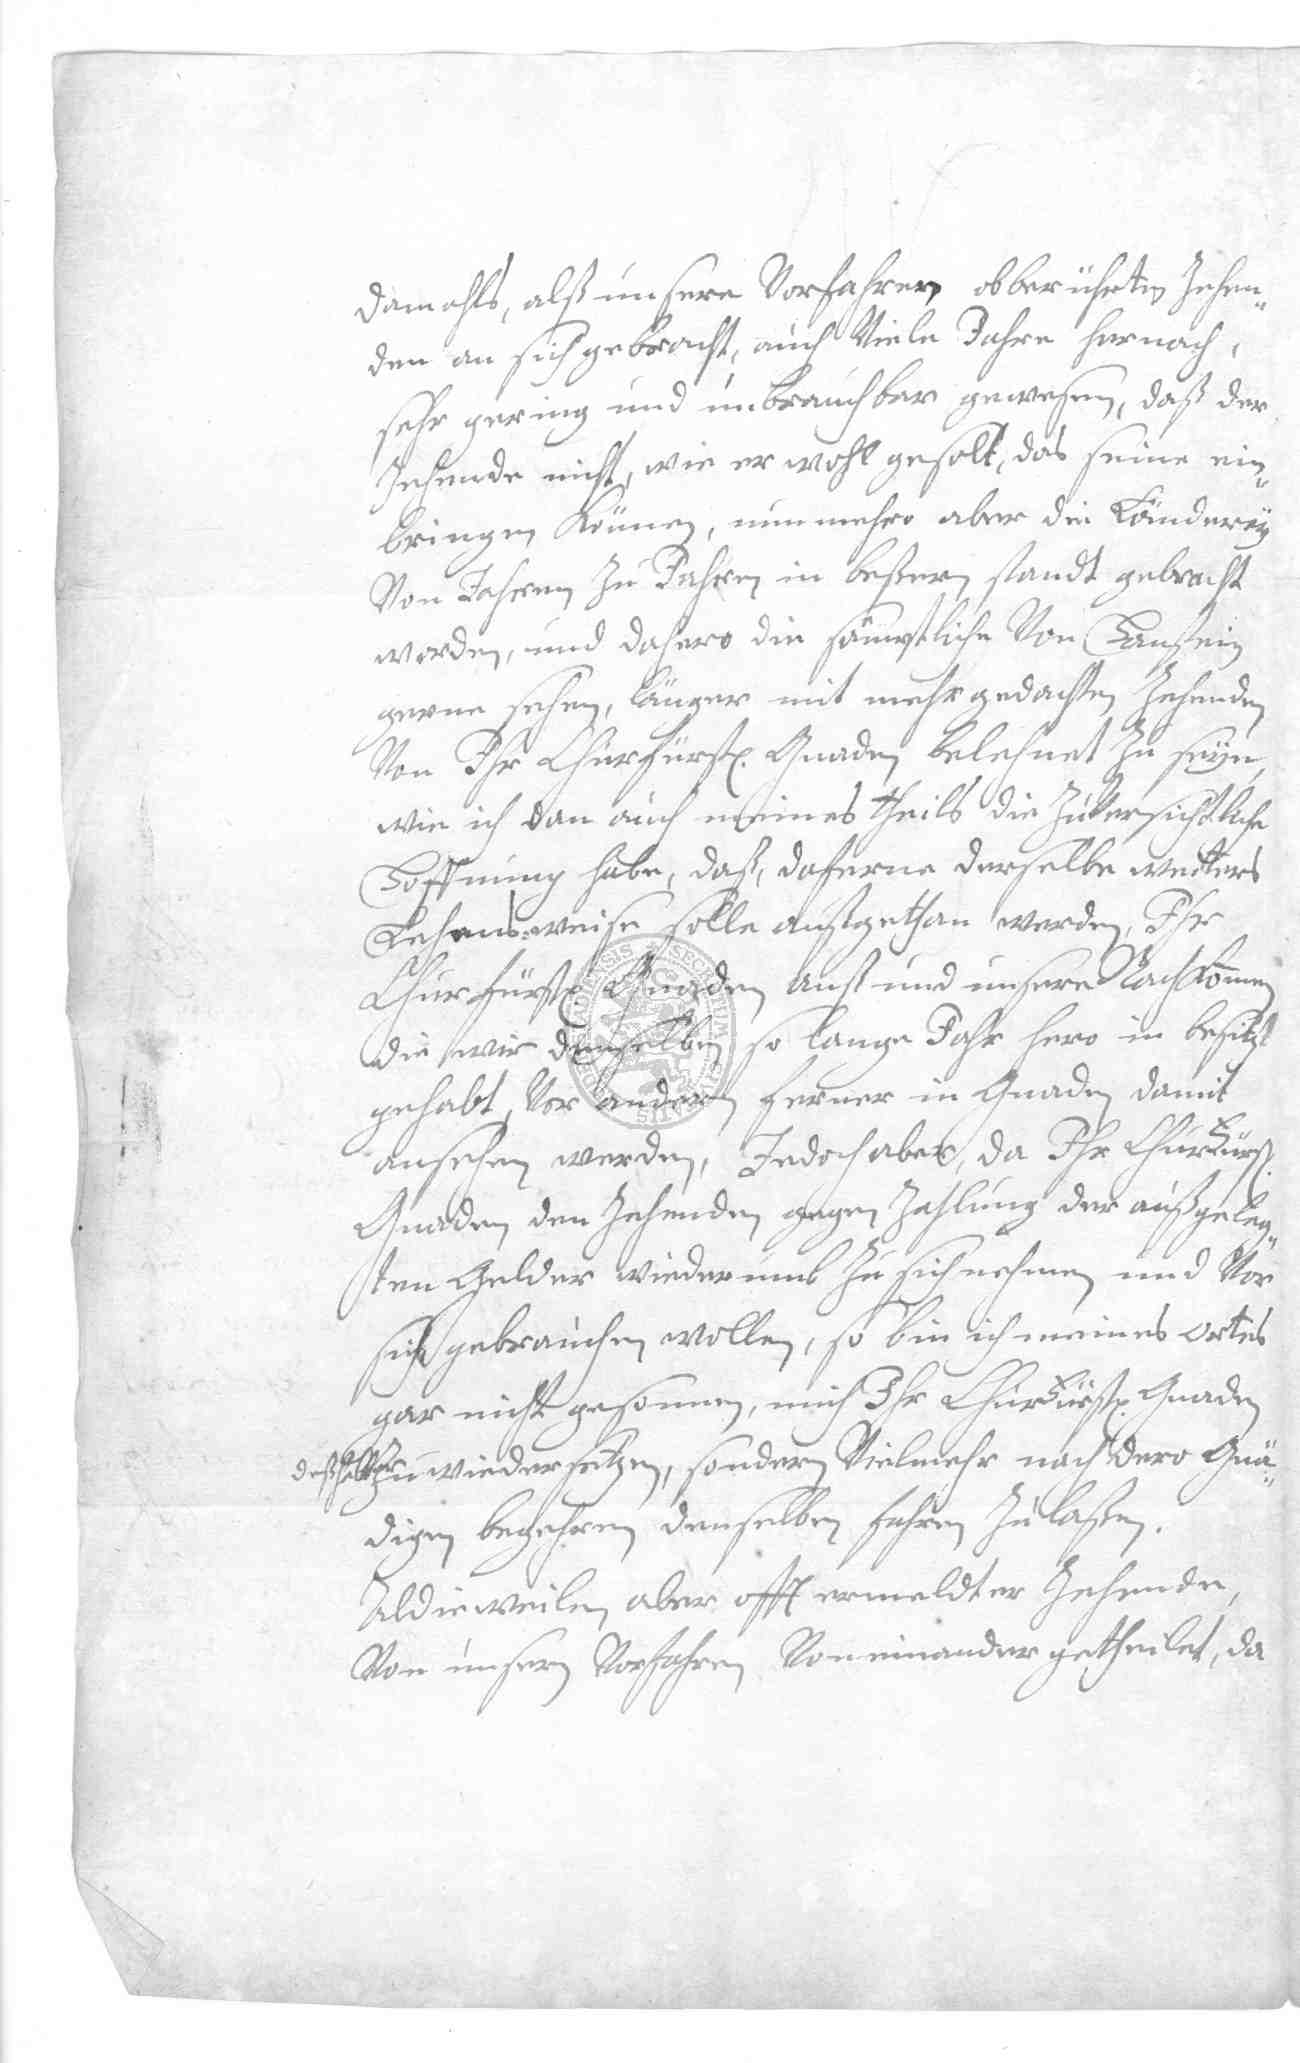 damahls, alß unsere Vorfahren obberührten Zehen„
den an sich gebracht, auch Viele Jahre hernach,
sehr gering und unbrauchbar gewesen, daß der
Zehende nicht, wie er wohl gesolt, das seine ein„
bringen können, nunmehro aber die Länderey
Von Jahren zu Jahren in beßern standt gebracht
worden, und dahero die sämbtliche Von Hanstein
gerne sehen, länger mit mehrgedachten Zehenden
Von Ihr Churfürstl. Gnaden belehnet zu seyn,
wie ich dan auch meines theils die zuversichtliche
Hoffnung habe, daß, daferne derselbe weiters
Lehensweise solle außgethan werden, Ihr
Churfürstl. Gnaden unß und unsere Nachkommen
die wir denselben so lange Jahr hero in besitz
gehabt, Vor andern ferner in Gnaden damit
ansehen werden, Jedoch aber, da Ihr Churfürstl.
Gnaden den Zehenden gegen Zahlung der außgeleg„
ten Gelder wiederumb zu sich nehmen und Vor
sich gebrauchen wollen, so bin ich meines ortes
gar nicht gesonnen, mich Ihr Churfürstl. Gnaden
deßhalber zu wiedersetzen, sondern Vielmehr nach dero Gnä„
digen begehren denselben fahren zu laßen.
Aldieweilen aber offt ermeldter Zehende,
Von unsern Vorfahren Voneinander getheilet, da
SECRETUM CIVITATIS